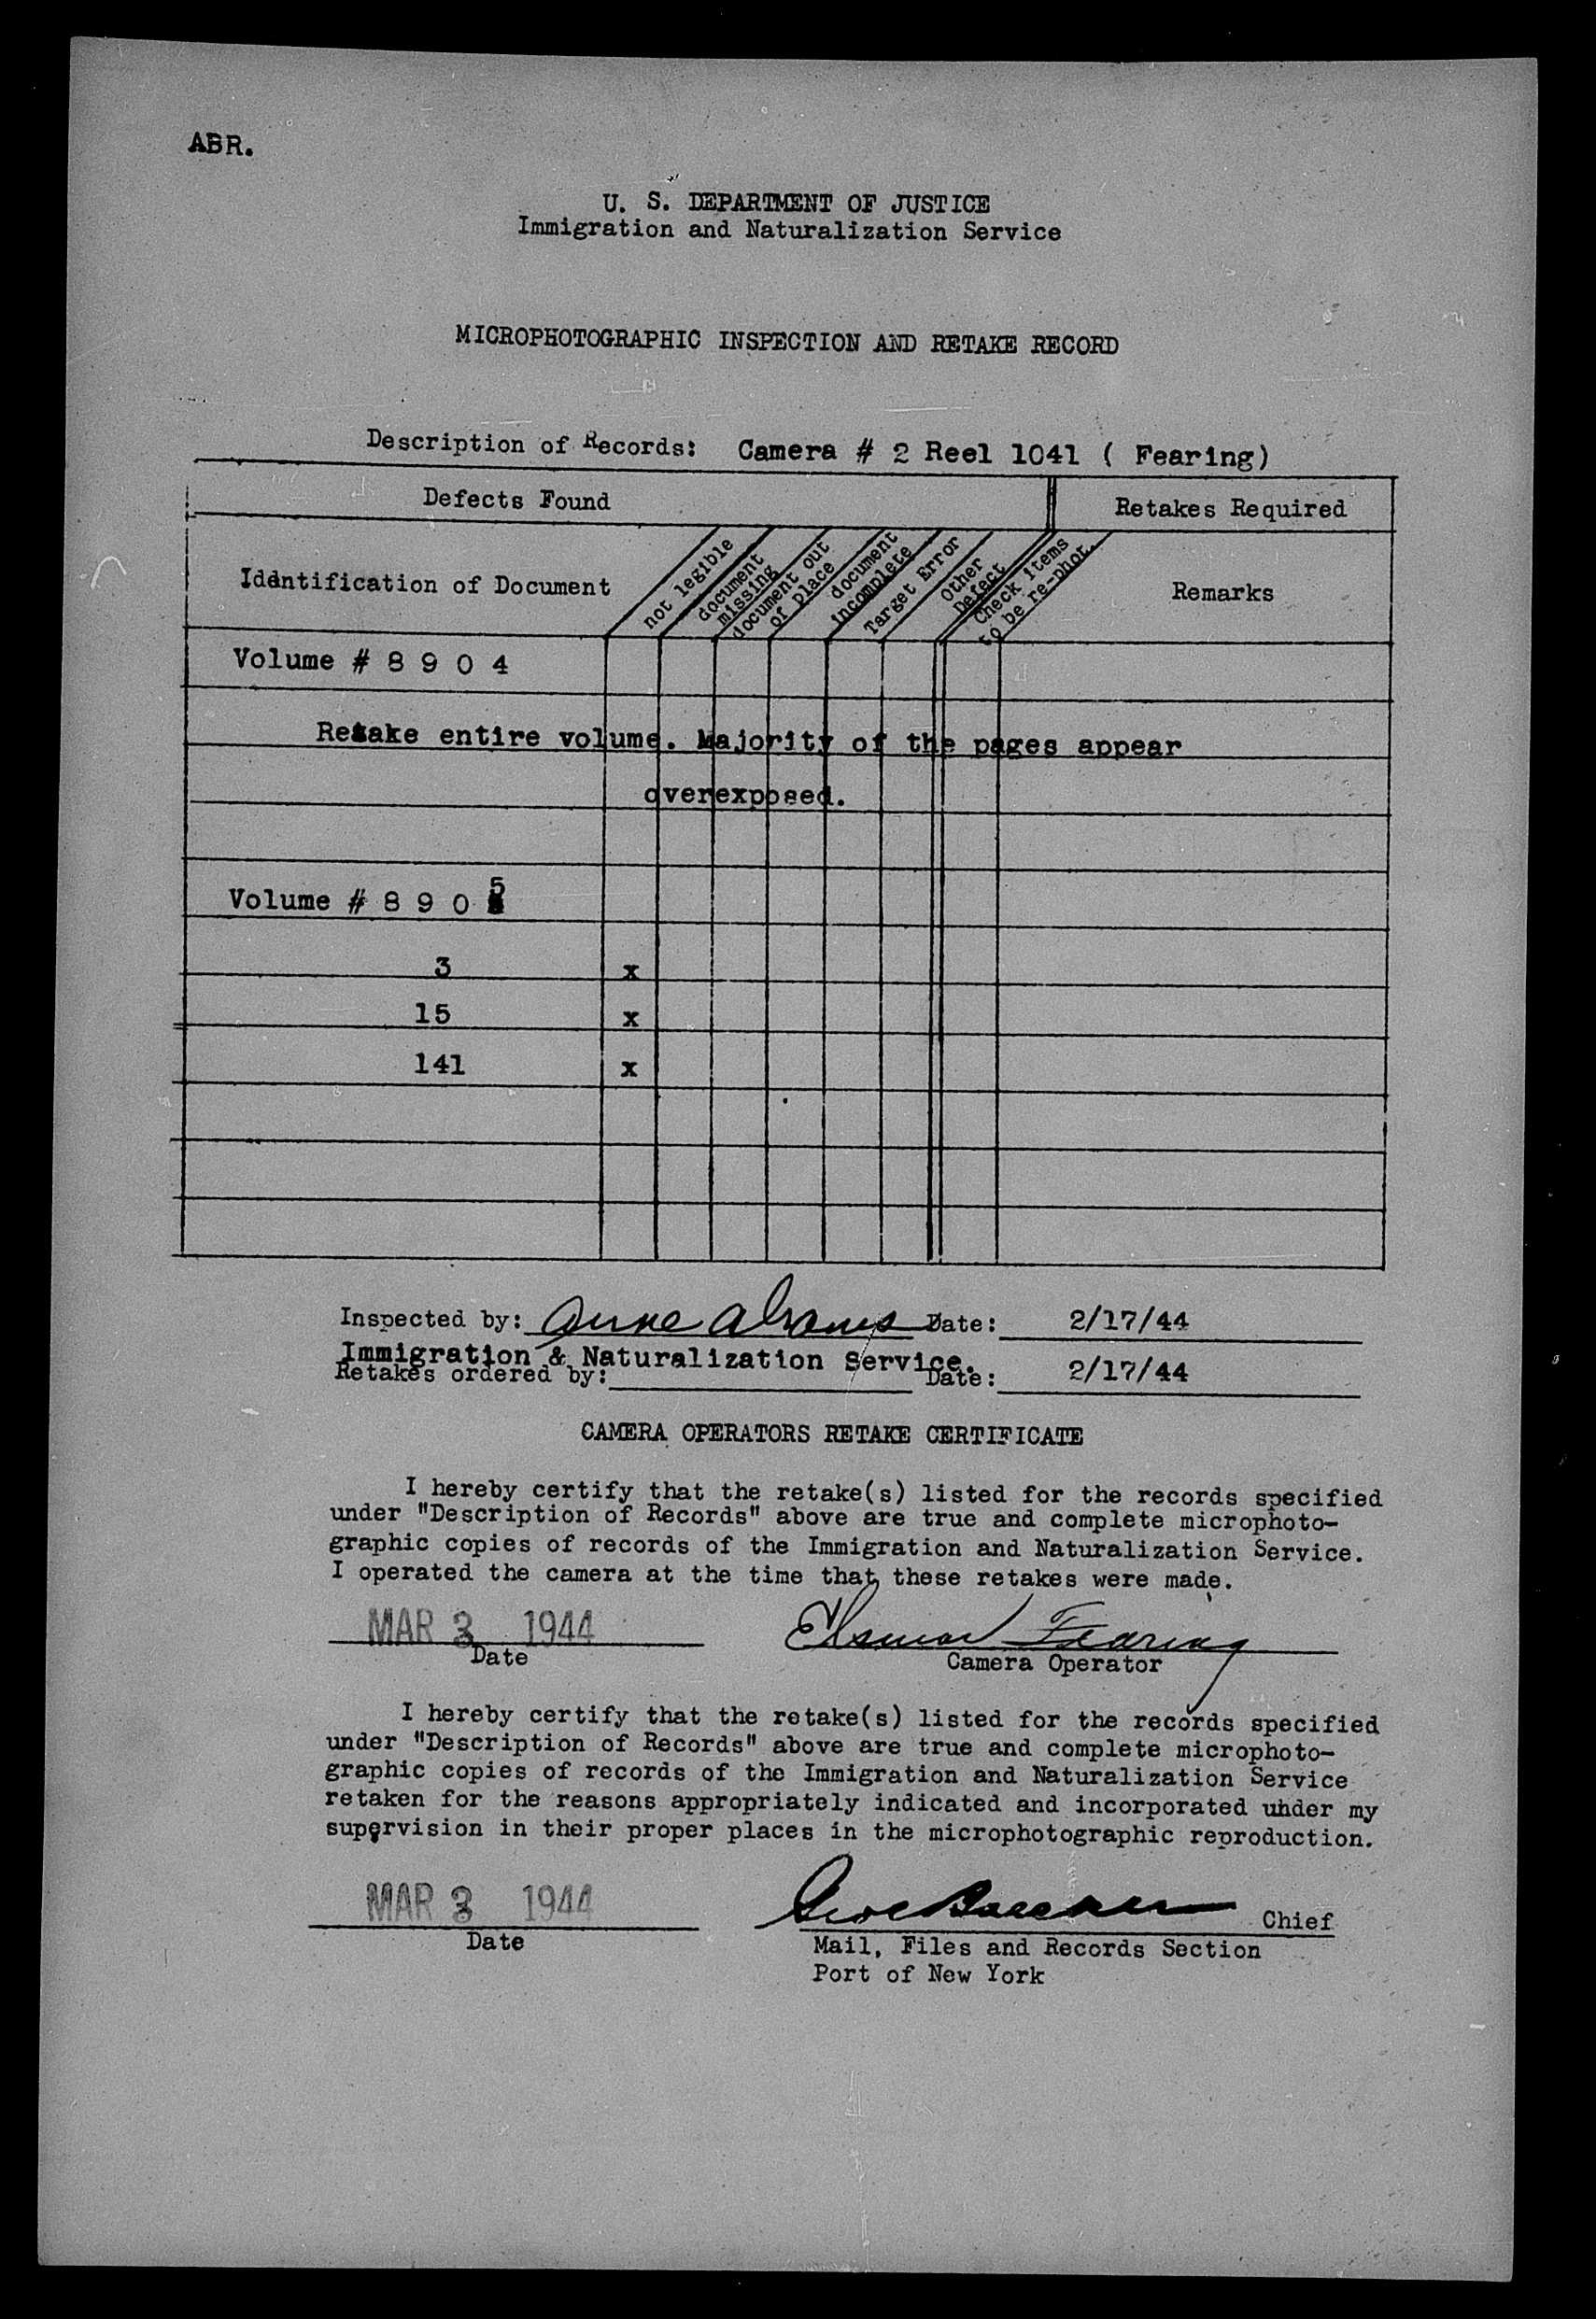 ABR.
U. S. DEPARTMENT OF JUSTICE
Immigration and Naturalization Service
MICROPHOTOGRAPHIC INSPECTION AND RETAKE RECORD
Description of Records: Camera # 2 Reel 1041 ( Fearing)
Defects Found
Retakes Required
Idèntification of Document
not legible
document missing
document out of place
document incomplete
Target Error
Other Defect
Check items to be re-phot.
Remarks
Volume # 8 9 0 4
Retake entire volume. Majority of the pages appear
overexposed.
Volume # 8 9 0 5
3 x
15 x
141 x
Inspected by: Anne Abrams Date: 2/17/44
Immigration & Naturalization Service.
Retakes ordered by: Date: 2/17/44
CAMERA OPERATORS RETAKE CERTIFICATE
I hereby certify that the retake(s) listed for the records specified
under "Description of Records" above are true and complete microphoto-
graphic copies of records of the Immigration and Naturalization Service.
I operated the camera at the time that these retakes were made.
MAR 3 1944
Date
Fearing
Camera Operator
I hereby certify that the retake(s) listed for the records specified
under "Description of Records" above are true and complete microphoto-
graphic copies of records of the Immigration and Naturalization Service
retaken for the reasons appropriately indicated and incorporated under my
supervision in their proper places in the microphotographic reproduction.
MAR 3 1944
Date
Chief
Mail, Files and Records Section
Port of New York